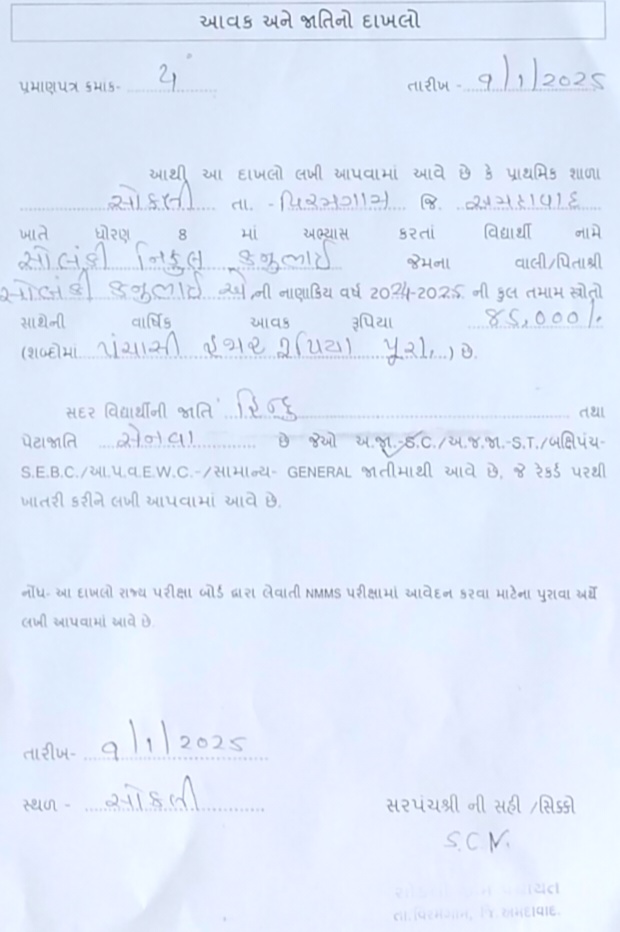 આવક અને જાતિનો દાખલો
પ્રમાણપત્ર ક્રમાંક-
તારીખ - ૧/1/2025
આથી આ દાખલો લખી આપવામાં આવે છે કે પ્રાથમિક શાળા
સોકલી તા. - વિરમગામ જિ. અમદાવાદ
ખાતે ધોરણ 8 માં અભ્યાસ કરતાં વિદ્યાર્થી નામે
સોલંકી નિકુલ કનુભાઈ જેમના વાલી/પિતાશ્રી
સોલંકી કનુભાઈ એ ની નાણાકિય વર્ષ 2024-2025 ની કુલ તમામ સ્ત્રોતો
સાથેની વાર્ષિક આવક રૂપિયા ૮૫,૦૦૦/.
(શબ્દોમાં પંચાસી હજાર રૂપિયા પૂરા..) છે.
સદર વિદ્યાર્થીની જાતિ હિન્દુ તથા
પેટાજાતિ સેનવા છે જેઓ અ.જા.-S.C./અ.જ.જા.-S.T./બક્ષિપંચ-
S.E.B.C./આ.પ.વ.E.W.C.-/સામાન્ય- GENERAL જાતીમાથી આવે છે, જે રેકર્ડ પરથી
ખાતરી કરીને લખી આપવામાં આવે છે.
નોંધ- આ દાખલો રાજ્ય પરીક્ષા બોર્ડ દ્વારા લેવાતી NMMS પરીક્ષામાં આવેદન કરવા માટેના પુરાવા અર્થે
લખી આપવામાં આવે છે.
તારીખ- ૧/1/2025
સ્થળ - સોકલી
સરપંચશ્રી ની સહી /સિક્કો
S.C.N.
તા.વિરમગામ, જિ. અમદાવાદ.